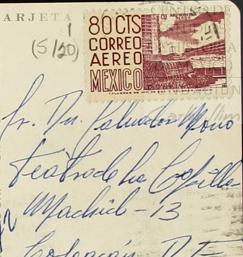 ARJETA
1
(5/20)
80 CTS
CORREO
AEREO
MEXICO
Sr. Dn. Salvador Novo
Teatro de la Capilla
Madrid - 13
Coyoacán D. F.